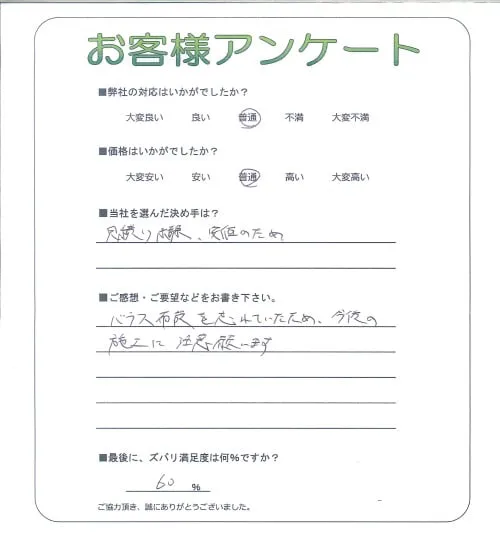 お客様アンケート
■弊社の対応はいかがでしたか？
大変良い 良い 普通 不満 大変不満
■価格はいかがでしたか？
大変安い 安い 普通 高い 大変高い
■当社を選んだ決め手は？
見積り 、安価のため
■ご感想・ご要望などをお書き下さい。
バラス布設を忘れていたため、今後の
施工に注意願います
■最後に、ズバリ満足度は何%ですか？
60 %
ご協力頂き、誠にありがとうございました。